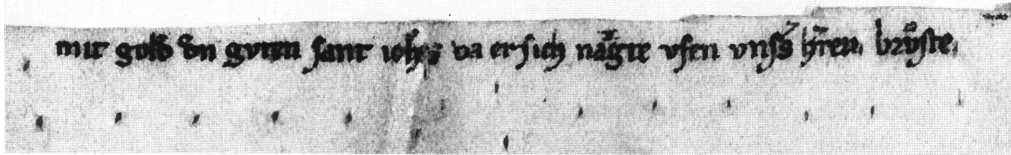 mit gold vn̄ gvten sant ioh̄s da er sich nagte vfen vnsˢ h̄ren. brv̊ste.